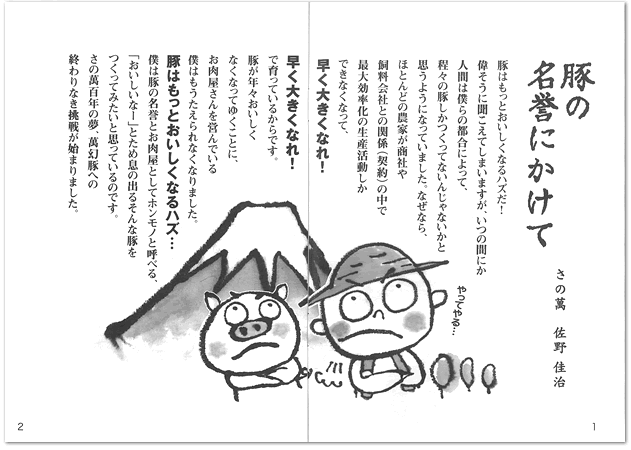 豚の
名誉にかけて
さの萬 佐野 佳治
豚はもっとおいしくなるハズだ！
偉そうに聞こえてしまいますが、いつの間にか
人間は僕らの都合によって、
程々の豚しかつくってないんじゃないかと
思うようになっていました。なぜなら、
ほとんどの農家が商社や
飼料会社との関係（契約）の中で
最大効率化の生産活動しか
できなくなって、
早く大きくなれ！
早く大きくなれ！
で育っているからです。
豚が年々おいしく
なくなってゆくことに、
お肉屋さんを営んでいる
僕はもうたえられなくなりました。
豚はもっとおいしくなるハズ…
僕は豚の名誉とお肉屋としてホンモノと呼べる、
「おいしいなー」とため息の出るそんな豚を
つくってみたいと思っているのです。
さの萬百年の夢、萬幻豚への
終わりなき挑戦が始まりました。
やってやる…
1
2